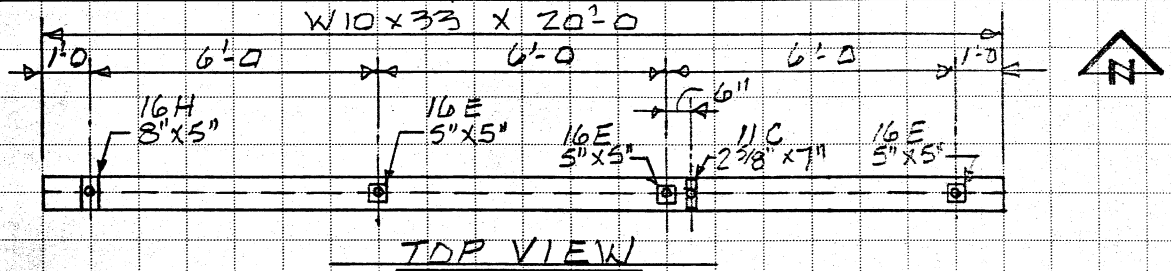 W10 x 33 x 20'-0
1'-0
6'-0
6'-0
6'-0
1'-0
N
6"
16 H
8"x5"
16 E
5"x5"
16 E
5"x5"
11 C
2 3/8" x 7"
16 E
5"x5"
TOP VIEW